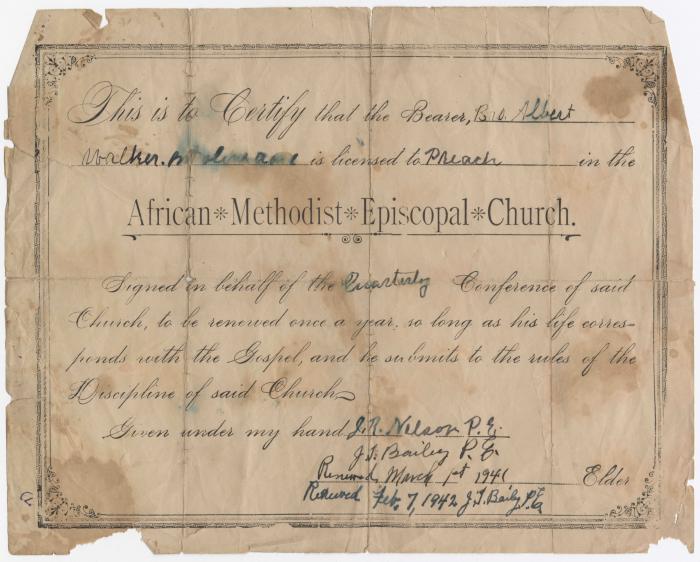 This is to Certify that the Bearer, Bro. Albert
Walker. is licensed to Preach in the
African * Methodist * Episcopal * Church.
Signed in behalf of the Quarterly Conference of said
Church, to be renewed once a year, so long as his life corres-
ponds with the Gospel, and he submits to the rules of the
Discipline of said Church
Given under my hand J. R. Nelson P. E.
J. T. Bailey P. E.
Renewed March 1st 1941 Elder
Renewed Feb. 7, 1942 J. T. Baily P. E.